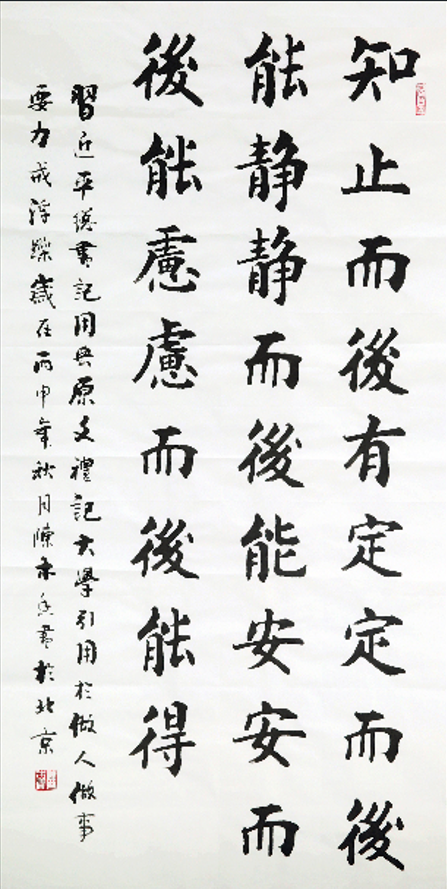 知止而後有定定而後
能静静而後能安安而
後能慮慮而後能得
習近平總書記用典原文禮記大學引用於做人做事
要力戒浮躁歲在丙申年秋月陳永書於北京